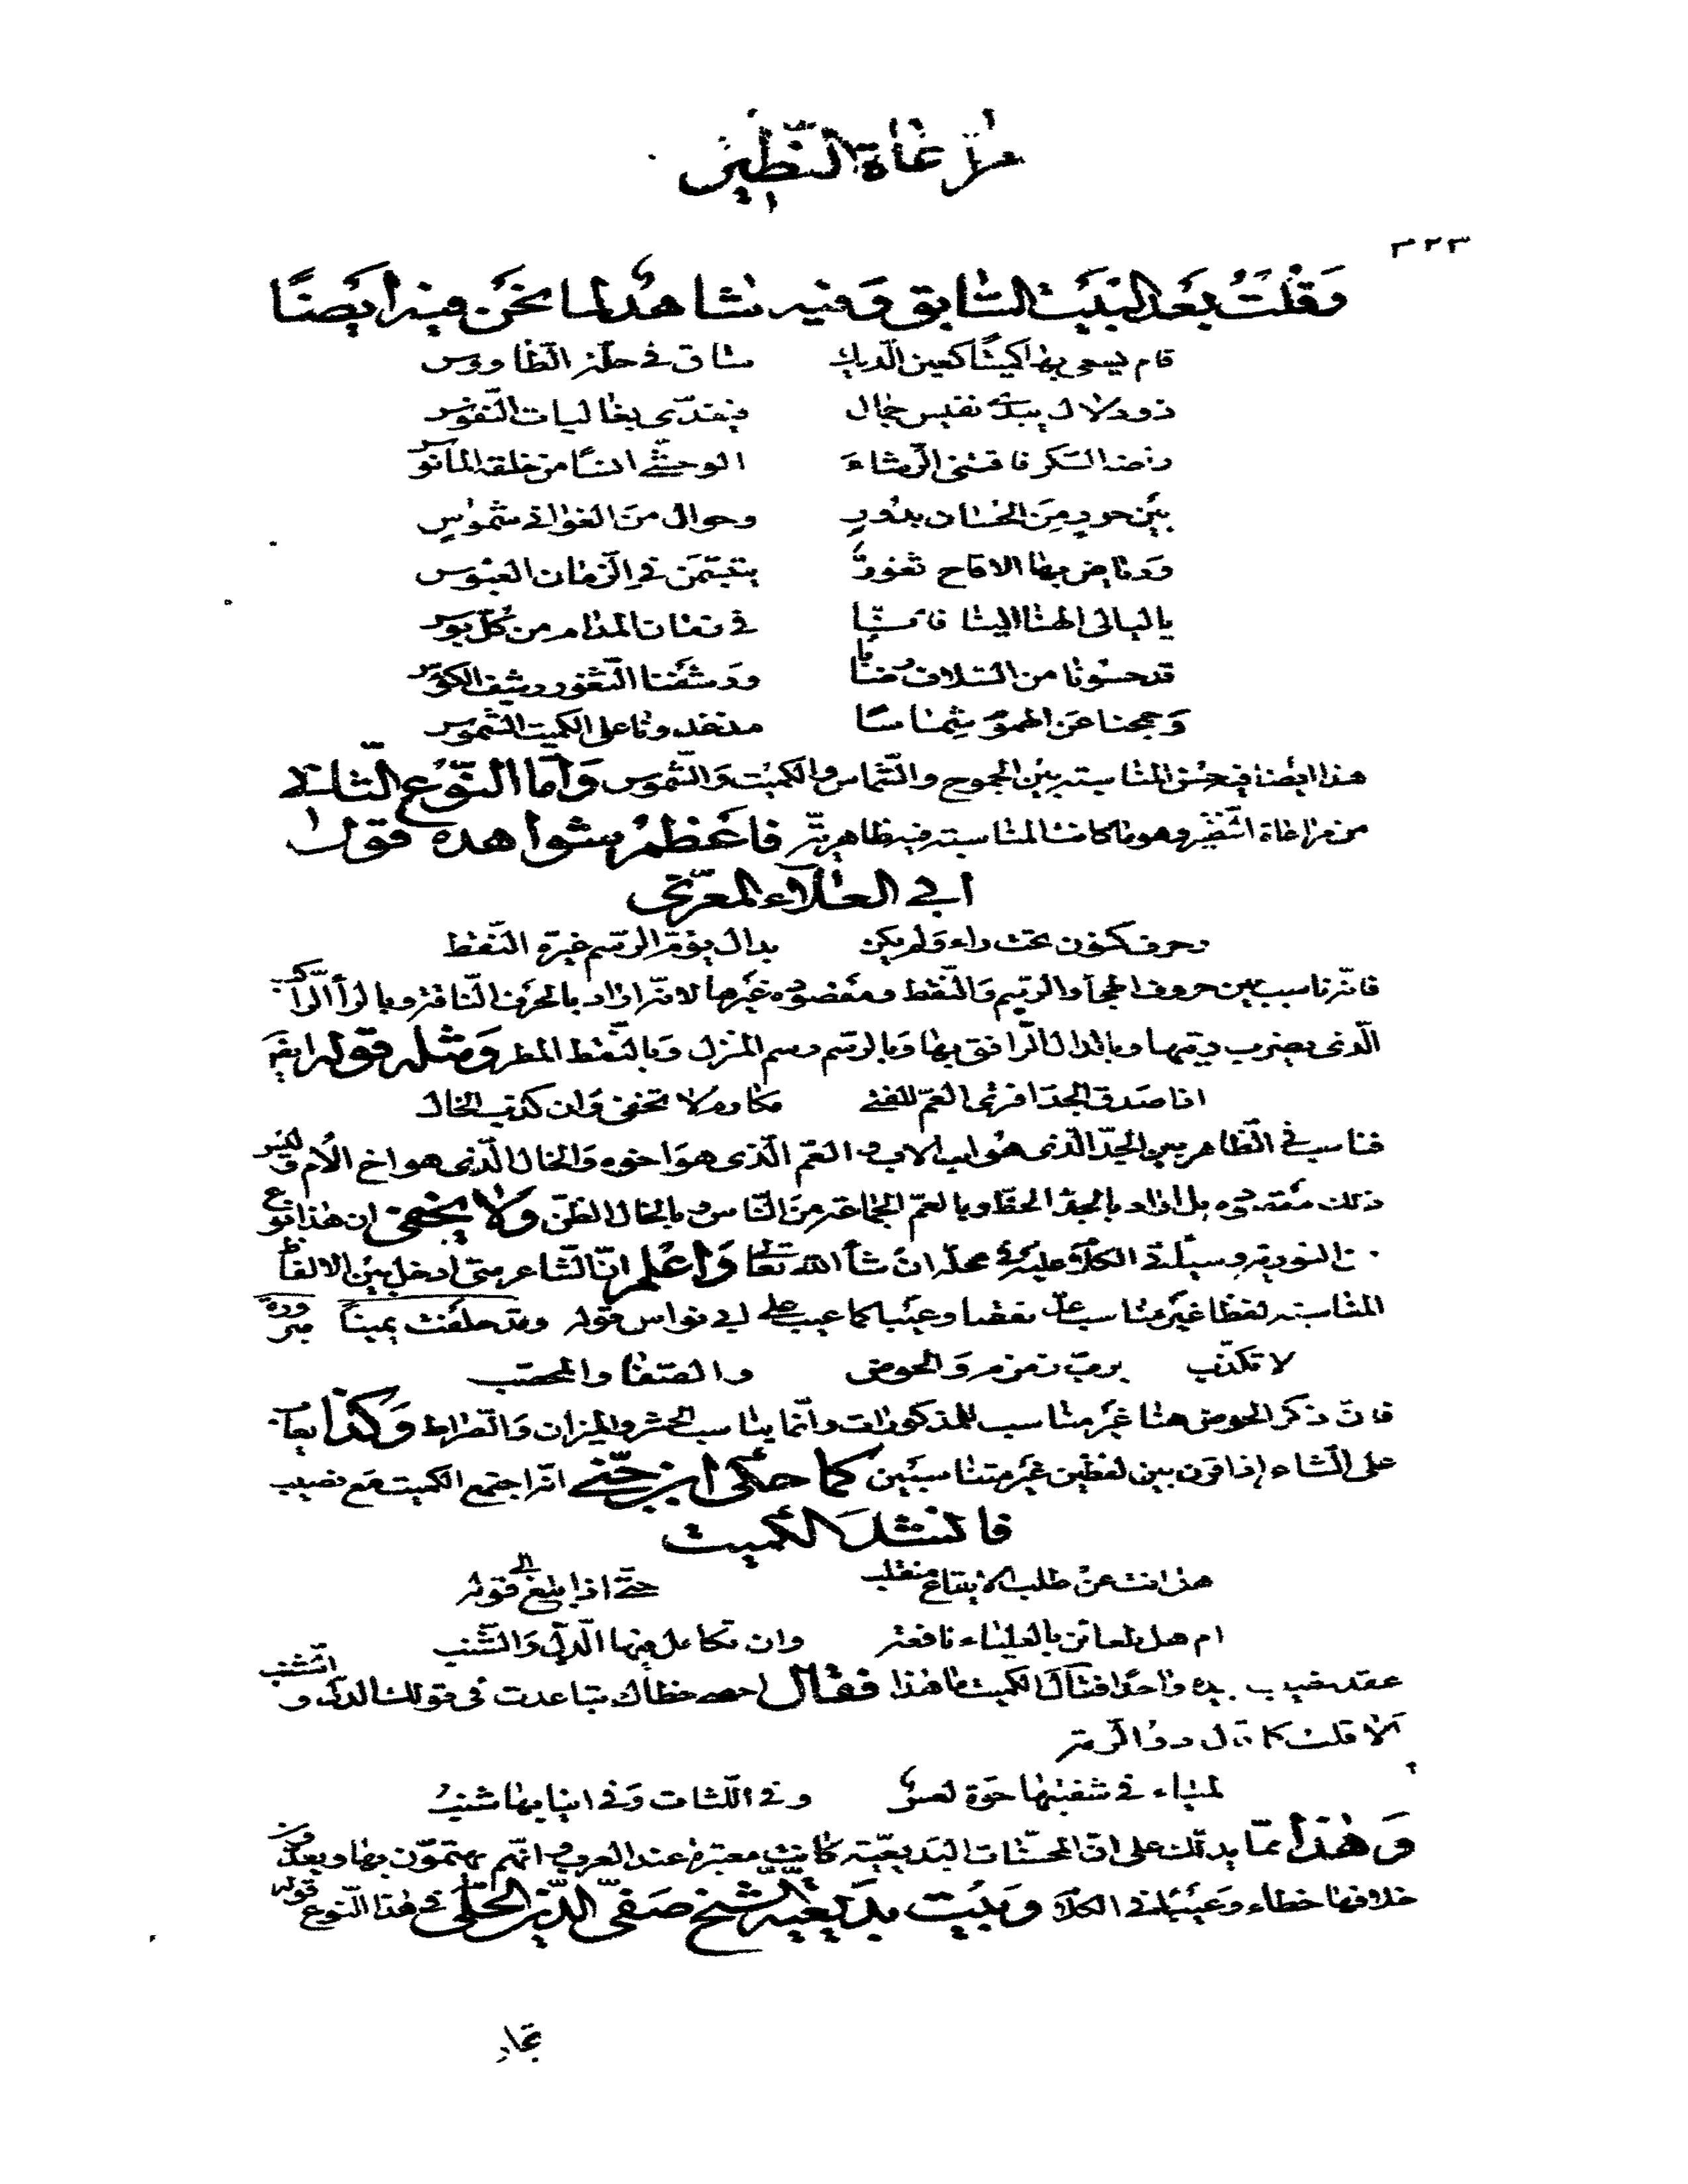 مراعاة النظير
٣٢٣
وقلت بعد البيت السابق وفيه شاهد لما نحن فيه ايضا
قام يسعى بها كميتا كعين الديك ساق في حلة الطاووس
ذو دلال نفيس جمال يفتدى بغاليات النفوس
السكر فاقتنى الرشاء الوحشي انسا من خلقه المأنوس
بين حور من الحسان بدور وحوال من الغواني شموس
بها الاقاح ثغور يتبسمن في الزمان العبوس
يا ليالي الهنا الينا في زمان المدام من كل بوس
قد حسونا من السلاف ورشفنا الثغور رشف الكؤس
وجمحنا عن الهموم شماسا مذ غدونا على الكميت الشموس
هذا ايضا فيه حسن المناسبة بين الجموح والشماس والكميت والشموس واما النوع الثاني
من مراعاة النظير وهو ما كانت المناسبة فيه ظاهرية فاعظم شواهده قول
ابي العلاء المعري
وحرف كنون تحت راء ولم يكن بدال يؤم الرسم غيره النقط
فانه ناسب بين حروف الهجا والرسم والنقط ومقصوده غيرها لانه اراد بالحرف الناقة وبالرأ الراكب
الذي يضرب ريتها وبالدال الرافق بها وبالرسم رسم المنزل وبالنقط المطر ومثله قوله ايضا
اذا صدق الجد افترى العم للفتى مكارم لا تخفى وان كذب الخال
فناسب في الظاهر بين الجد الذي هو اب الاب والعم الذي هو اخوه والخال الذي هو اخ الام وليس
ذلك مقصوده بل اراد بالجد الحظ وبالعم الجماعة من الناس وبالخال الظن ولا يخفى ان هذا نوع
من التورية وسيأتي الكلام عليه في محله ان شأ الله تعالى واعلم ان الشاعر متى ادخل بين الالفاظ
المناسبة لفظا غير مناسب عد نقصا وعيبا كما عيب على ابي نواس قوله وقد حلفت يمينا مبرورة
لا تكذب برب زمزم والحوض والصفا والمحصب
فان ذكر الحوض هنا غير مناسب للمذكورات وانما يناسب الحشر والميزان والصراط وكذا يعاب
على الشاعر إذا قرن بين لفظين غير متناسبين كما حكى ابن جني انه اجتمع الكميت مع نصيب
فانشد الكميت
هل انت عن طلب الايفاع منقلب حتى اذا بلغ الى قوله
ام هل ظعائن بالعلياء نافعة وان تكامل فيها الدل والشنب
عقد نصيب بيده واحدا فقال الكميت ما هذا فقال احصي خطاك تباعدت في قولك الدل والشنب
الا قلت كما قال ذو الرمة
لمياء في شفتيها حوة لعس وفي اللثات وفي انيابها شنب
وهذا مما يدلك على ان المحسنات البديعية كانت معتبرة عند العرب وانهم يهتمون بها ويعدون
خلافها خطاء وعيبا في الكلام وبيت بديعية الشيخ صفي الدين الحلي في هذا النوع قوله
تجار